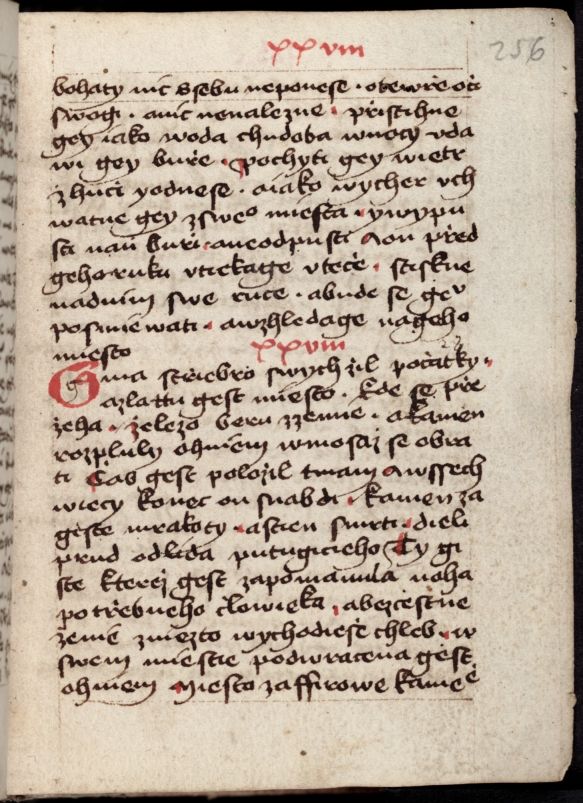 xxviii
256
bohaty nic ssebu neponese · otewrře oči
swogi · anic nenalezne · přistihne
gey iako woda chudoba wnocy vda
wi gey buře · pochyti gey wietr
zhuci yodnese · aiako wycher vch
watne gey zsweº miesta · ywypu
sti nań buři · aneodpusti Aon před
geho ruku vtiekage vteče · stiskne
nadnim swe ruce · abude se geº
posmiewati · awzhledage nageho
miesto
xxviii
Gma střiebro swych žil počatky ·
azlattu gest miesto · kde se pře
žeha · železo beru zzemie · akamen
rozpluly ohniem wmosaz se obra
ti Čas gest položil tmam Awssech
wiecy konec on snabdi · kamen za
geste mrakoty · astien smrti · dieli
prud odlida putugicieho Ty gi
ste kterez gest zapomanula noha
potřebneho człowieka · abezcestne
Zemie zniezto wychodieše chleb · w
swem miestie podwracena gest
ohniem Miesto zaffirowe kameē